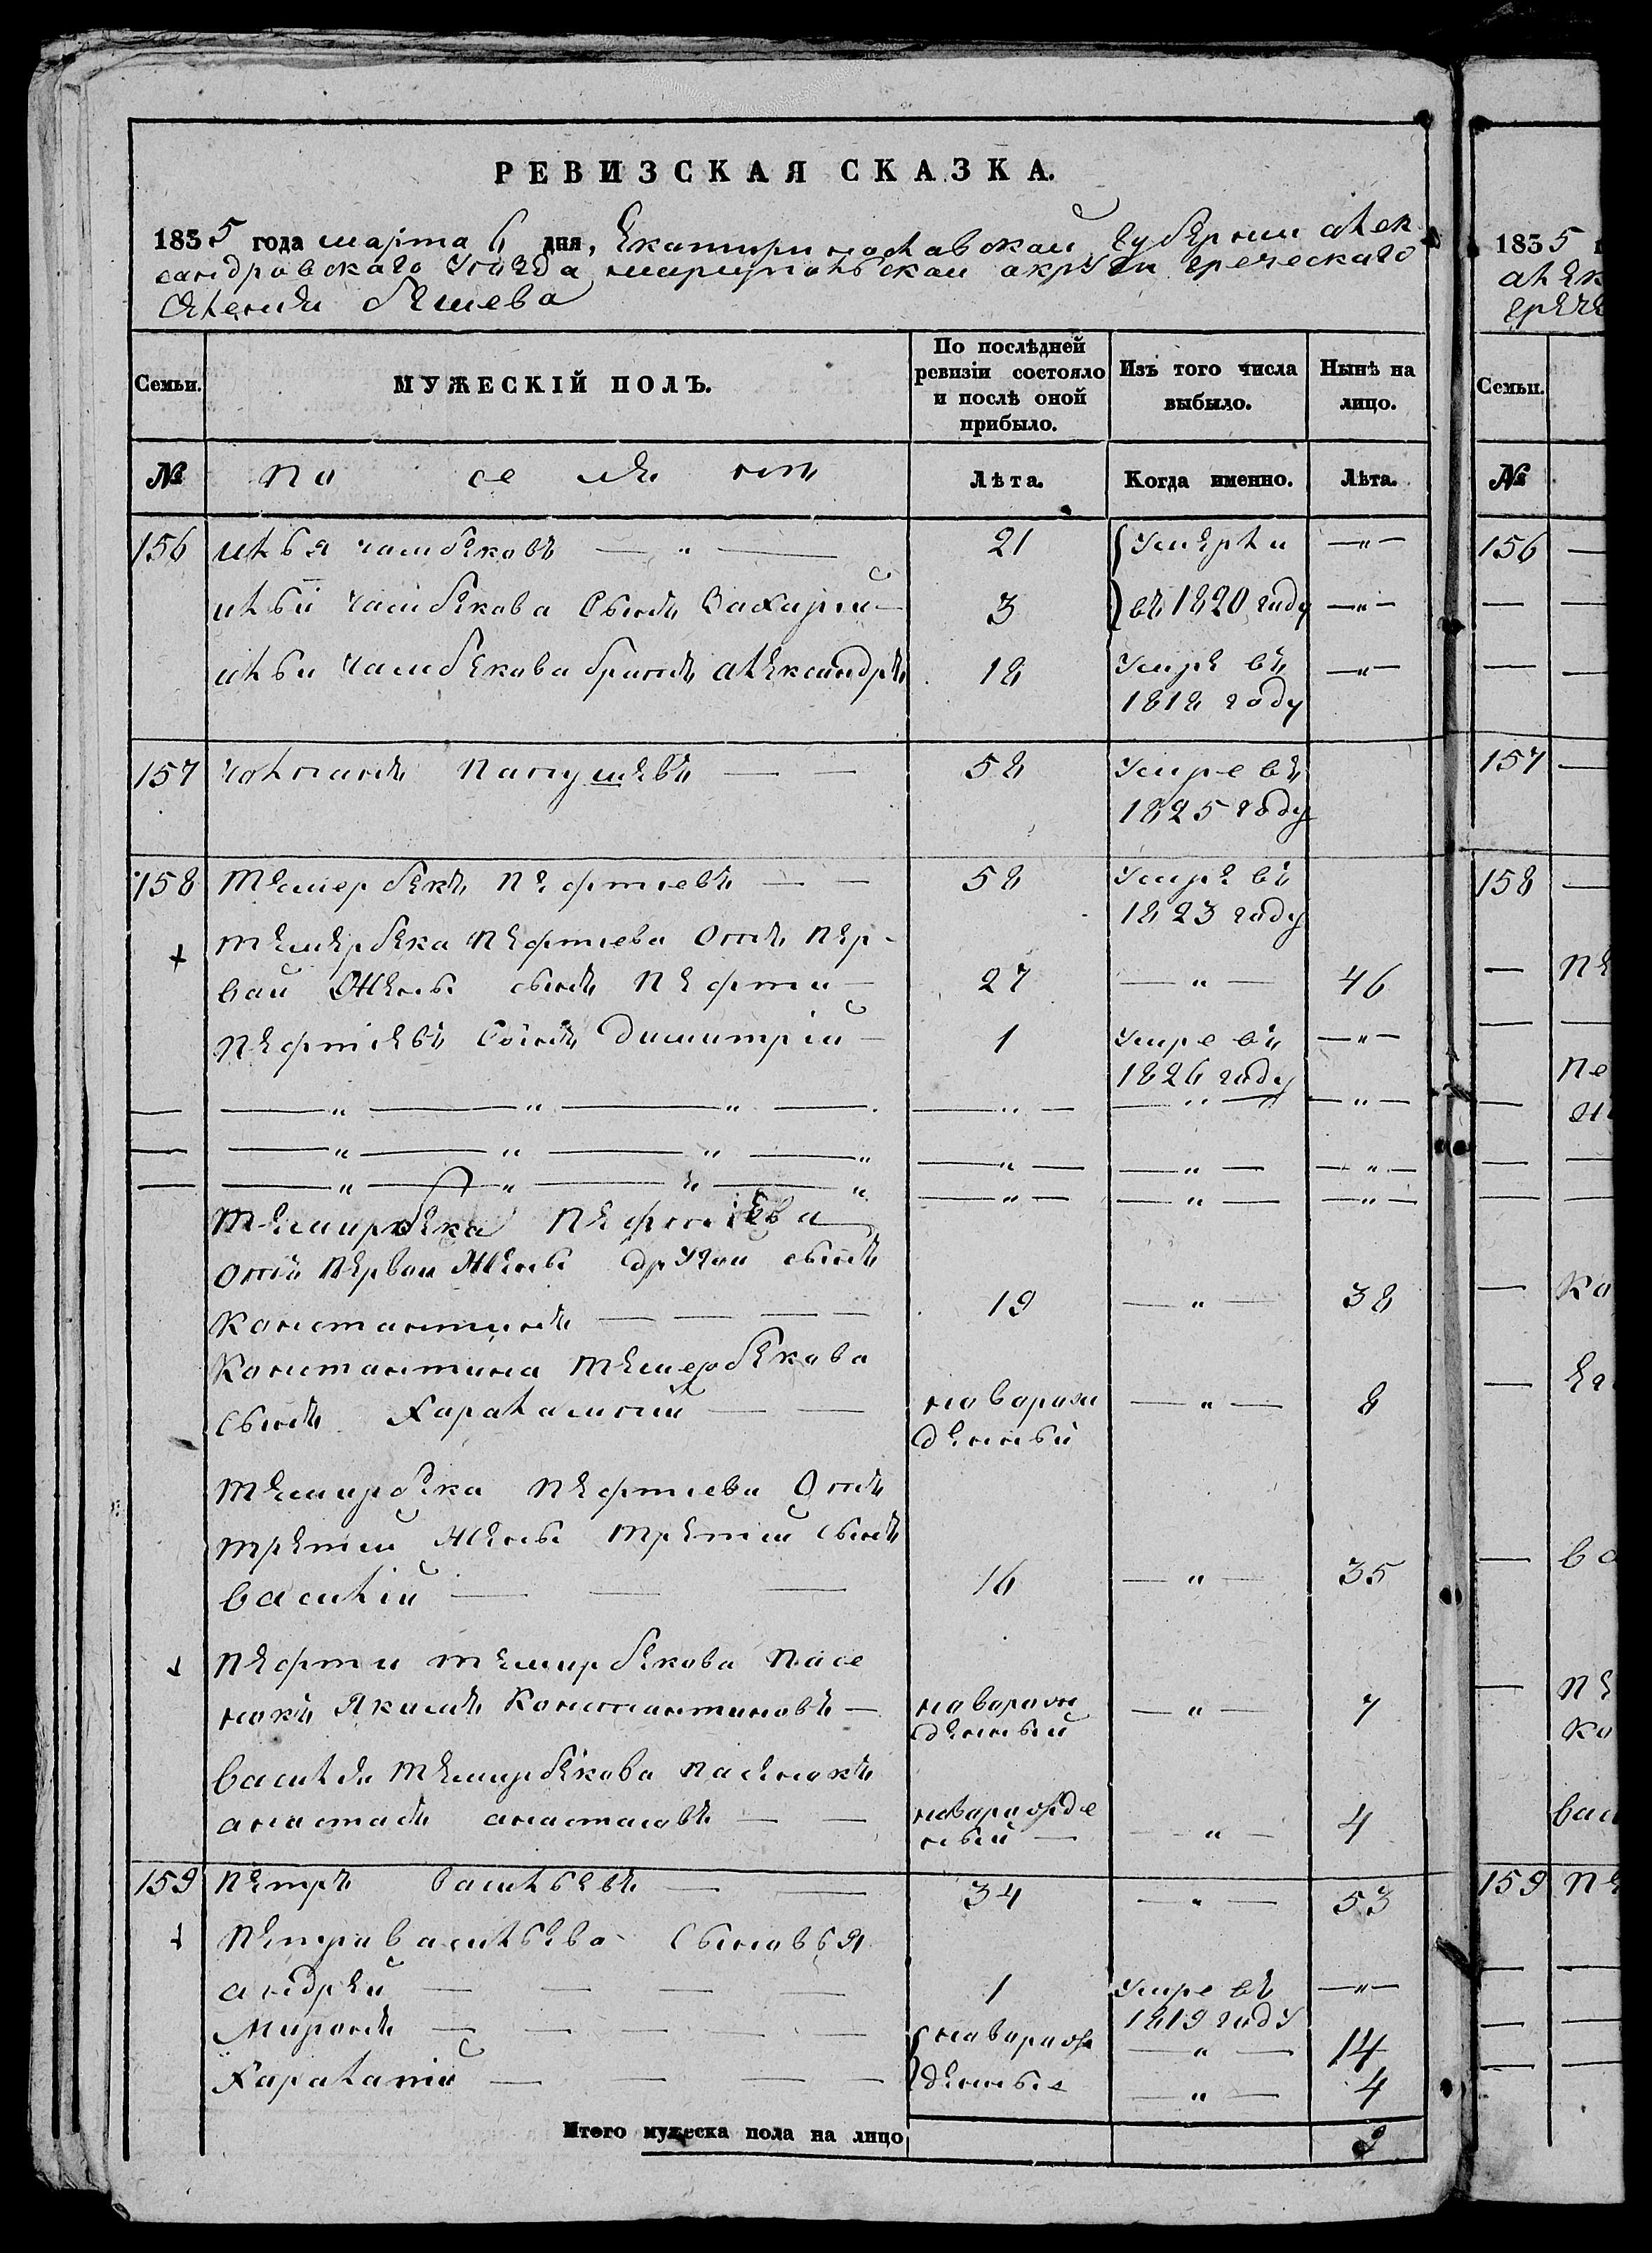 РЕВИЗСКАЯ СКАЗКА.
1835 года марта 6 дня, Екатеринославской губернии алек
сандровскаго уѣзда мариупольскаи округи греческаго
Селения бешева
Семьи. МУЖЕСКІЙ ПОЛЪ. По послѣдней ревизіи состояло и послѣ оной прибыло. Изъ того числа выбыло. Нынѣ на лицо.
№ по се ля нъ Лѣта. Когда именно. Лѣта.
156 илья чамбековъ — „ — 21 умерли — „ —
ильи чамбекова Сынъ Захарий — 3 въ 1820 году — „ —
ильи чамбекова братъ александръ 18 умре въ — „ —
1818 году
157 папушевъ — — 58 умре въ
1825 году
158 темербекъ пефтиевъ — — 58 умре въ
1823 году
темербека пефтиева отъ пер-
вай жены сынъ пефти — 27 — „ — 46
пефтіевъ сынъ димитрій — 1 умре въ — „ —
1826 году
— „ — „ — „ — — „ — — „ — — „ —
— „ — „ — „ — „ — „ — — „ — — „ —
— „ — „ — „ — „ — „ — — „ — — „ —
темирбека пефтиева
отъ первои жены другои сынъ
константинъ — — — — 19 — „ — 38
константина темербекова
сынъ Харалампий — — наварож — „ — 8
денный
темирбека пефтиева отъ
третей жены третий сынъ
василій — — — 16 — „ — 35
пефти темирбекова пасе
нокъ Якимъ константиновъ — наварож — „ — 7
денный
василя темирбекова пасенокъ
анастасъ анастасовъ — — наварожде — „ — 4
ный —
159 петръ васильевъ — — 34 — „ — 53
петра васильева сыновья
андрей — — — — 1 умре въ — „ —
1819 году
Миронъ — — — — — наварож — „ — 14
Харалапий — — — — денные — „ — 4
Итого мужеска пола на лицо 9
1835
алек
грече
Семьи.
№
156 —
— —
— —
157 —
158 —
— пе
— —
пе
— —
— —
— —
— ко
—
— ва
— пе
ко
васи
159 пе
— —
— —
— —